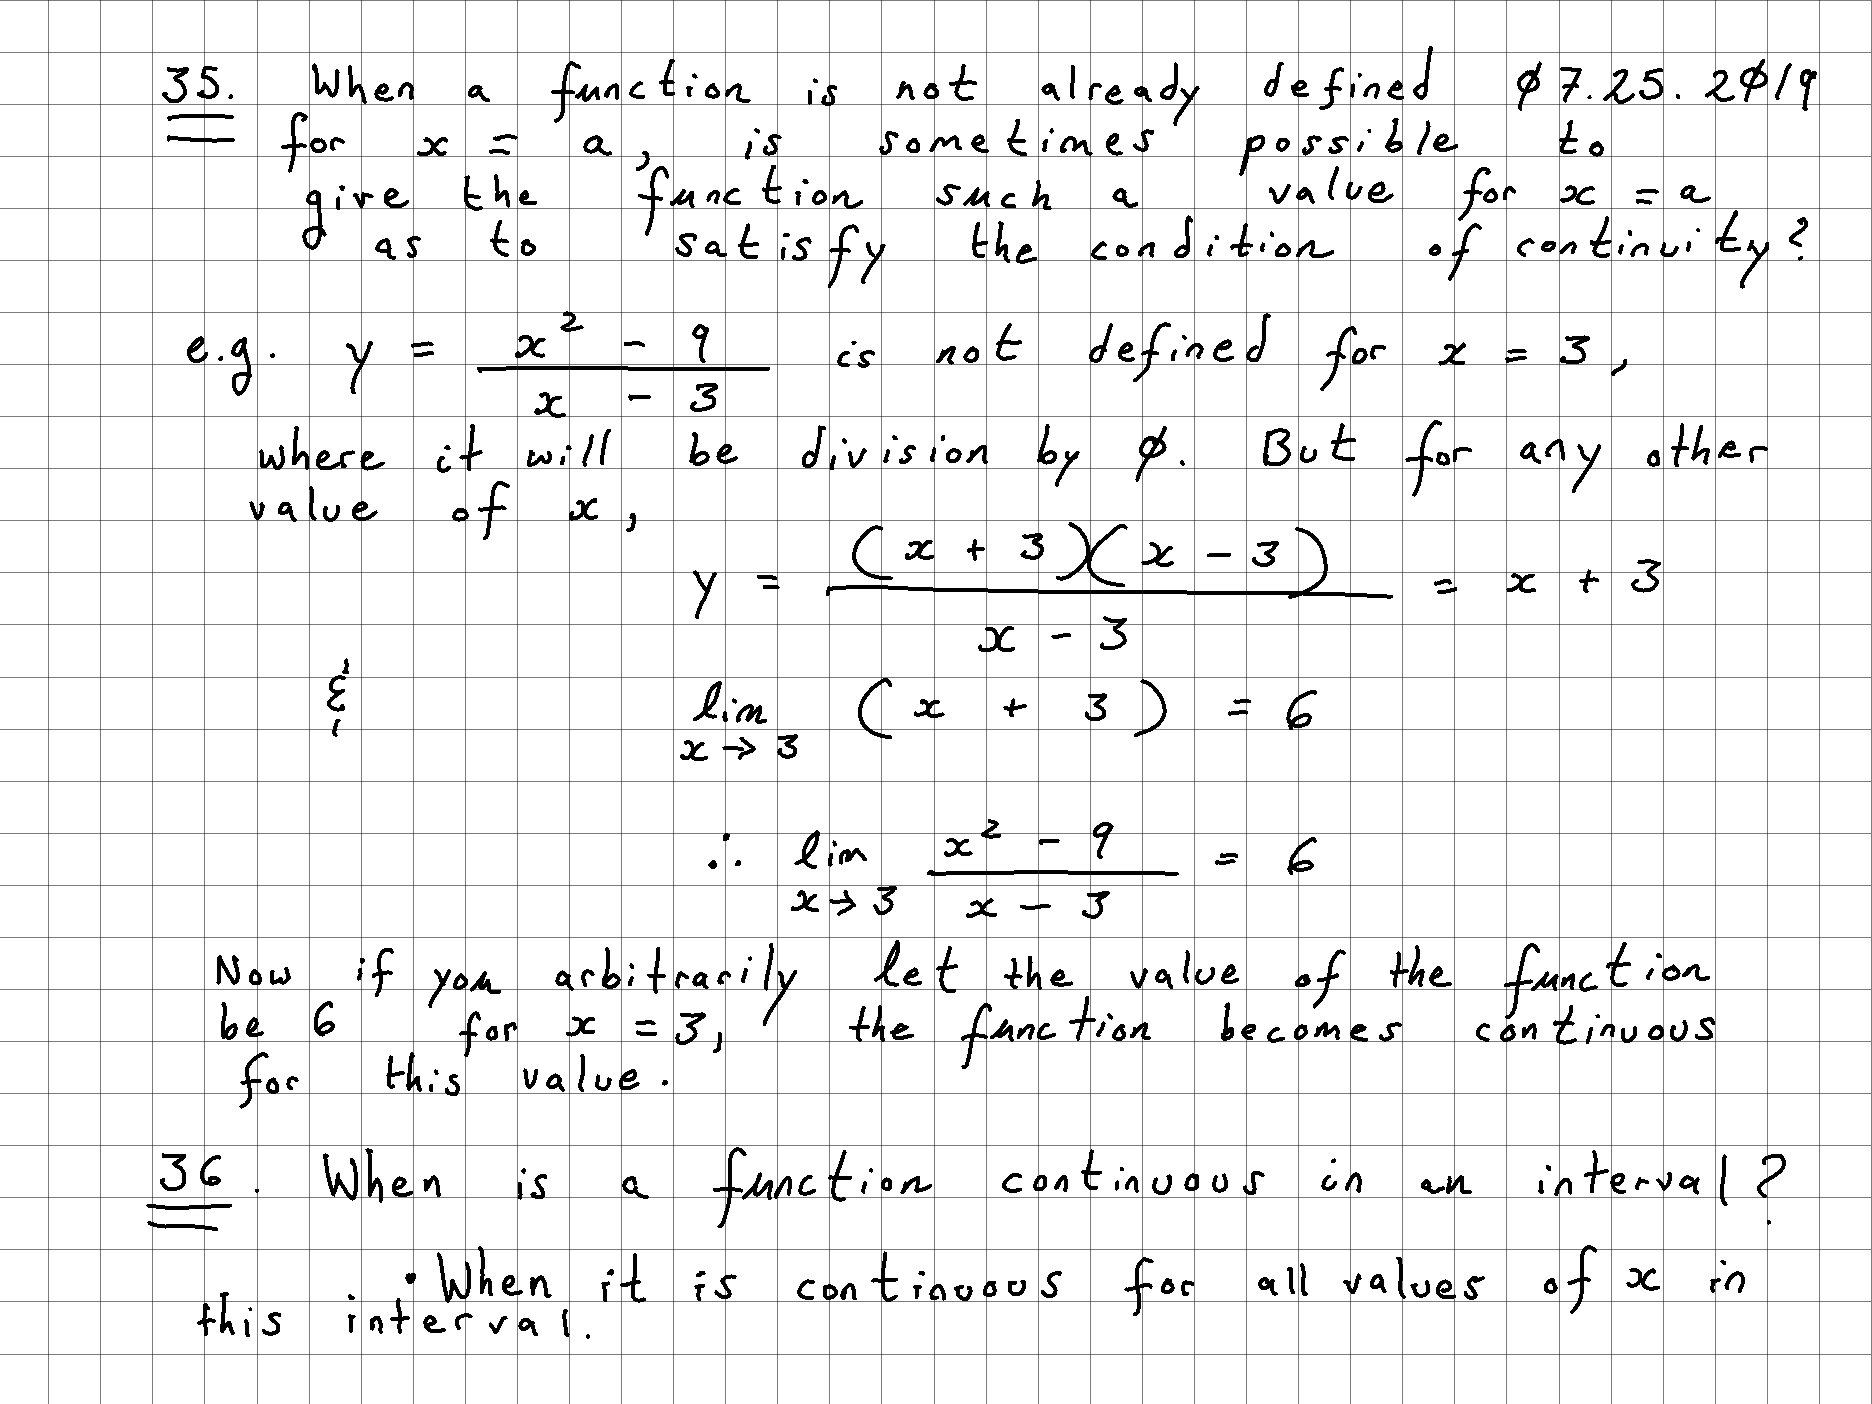 35. When a function is not already defined 07.25.2019
for x = a, is sometimes possible to
give the function such a value for x = a
as to satisfy the condition of continuity?
e.g. y = (x² - 9)/(x - 3) is not defined for x = 3,
where it will be division by 0. But for any other
value of x,
y = ((x + 3)(x - 3))/(x - 3) = x + 3
& lim x→3 (x + 3) = 6
∴ lim x→3 (x² - 9)/(x - 3) = 6
Now if you arbitrarily let the value of the function
be 6 for x = 3, the function becomes continuous
for this value.
36. When is a function continuous in an interval?
• When it is continuous for all values of x in
this interval.